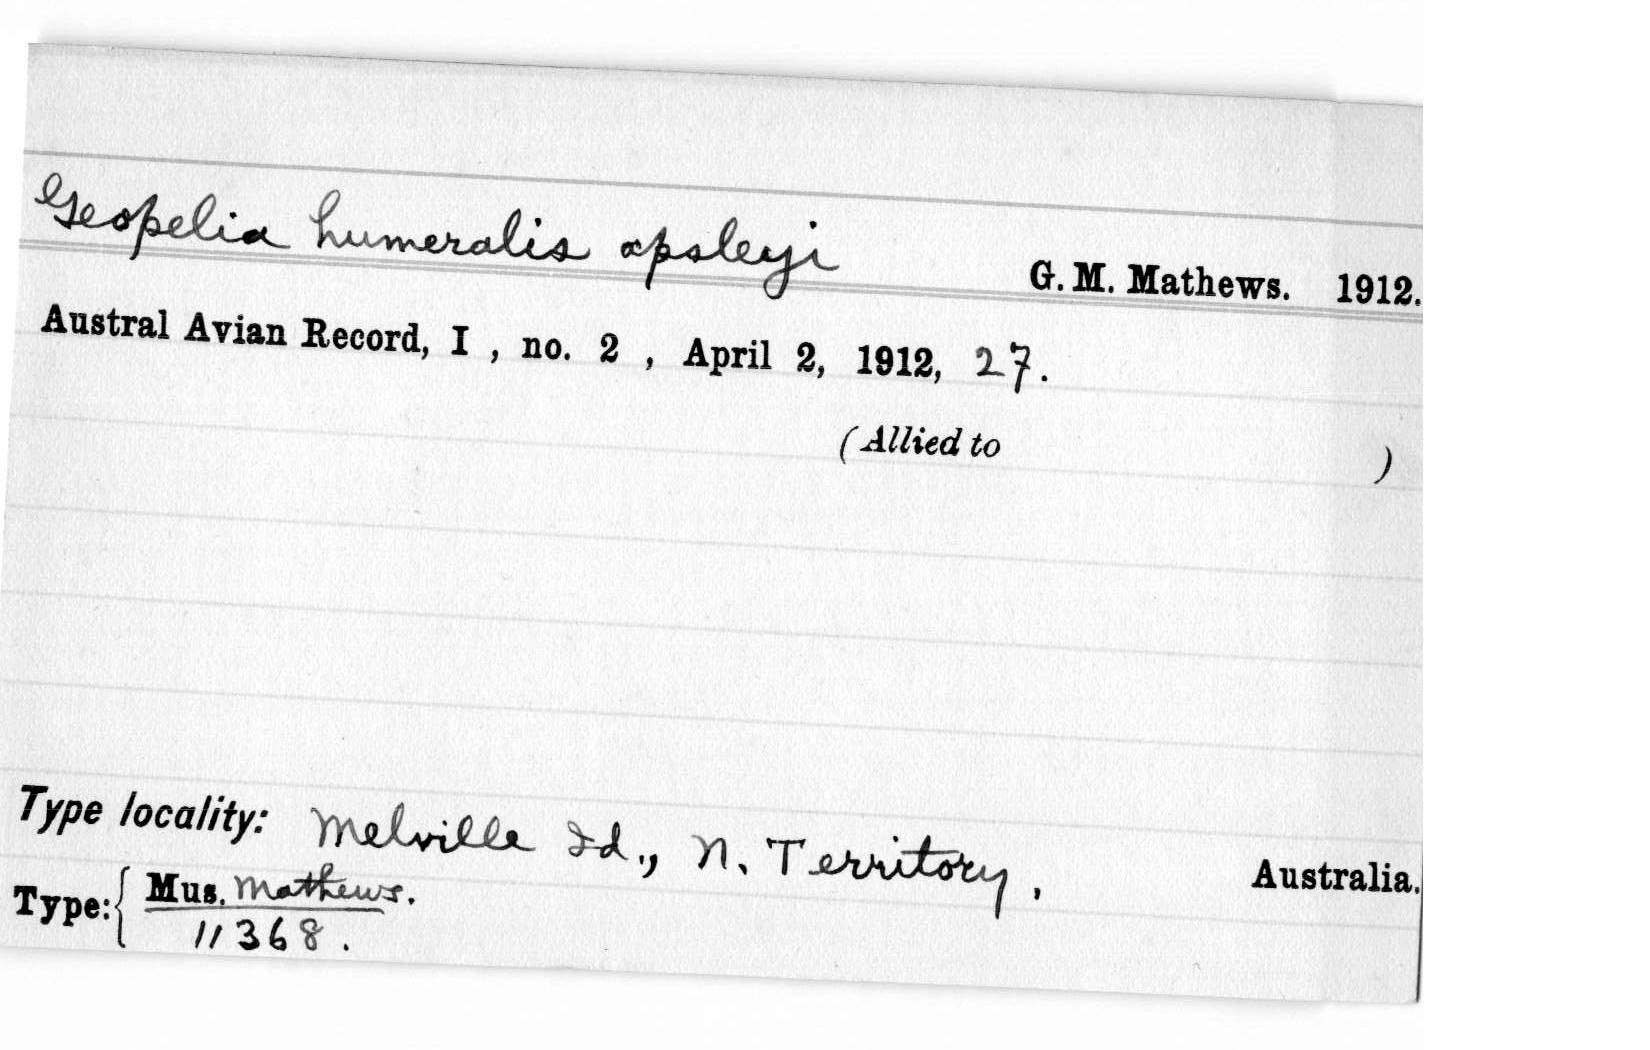 Geopelia humeralis apsleyi G. M. Mathews. 1912.
Austral Avian Record, I , no. 2 , April 2, 1912, 27.
(Allied to )
Type locality: Melville Id., N. Territory, Australia.
Type: { Mus. Mathews.
11368.